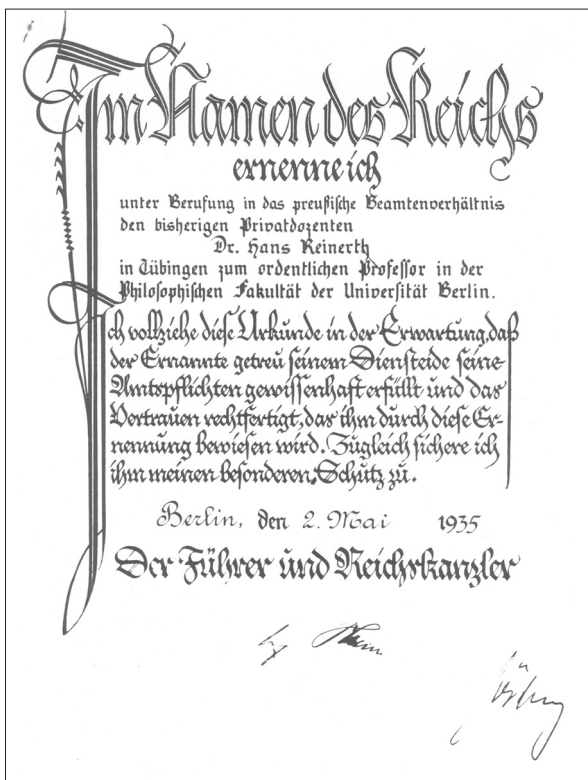 Im Namen des Reichs
ernenne ich
unter Berufung in das preußische Beamtenverhältnis
den bisherigen Privatdozenten
Dr. Hans Reinerth
in Tübingen zum ordentlichen Professor in der
Philosophischen Fakultät der Universität Berlin.
Ich vollziehe diese Urkunde in der Erwartung, daß
der Ernannte getreu seinem Diensteide seine
Amtspflichten gewissenhaft erfüllt und das
Vertrauen rechtfertigt, das ihm durch diese Er-
nennung bewiesen wird. Zugleich sichere ich
ihm meinen besonderen Schutz zu.
Berlin, den 2. Mai 1935
Der Führer und Reichskanzler